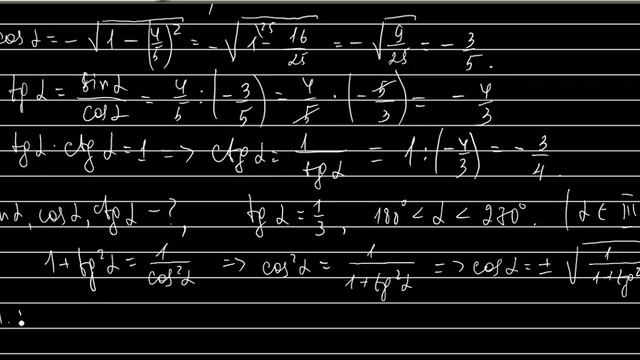 cos α = - √(1 - (4/5)²) = - √(1²⁵ - 16/25) = - √(9/25) = - 3/5.
tg α = sin α / cos α = 4/5 : (- 3/5) = 4/5 · (- 5/3) = - 4/3
tg α · ctg α = 1 => ctg α = 1 / tg α = 1 : (- 4/3) = - 3/4.
cos α, ctg α - ?, tg α = 1/3, 180° < α < 270°. (α ∈ III
1 + tg² α = 1 / cos² α => cos² α = 1 / (1 + tg² α) => cos α = ± √(1 / (1 + tg²